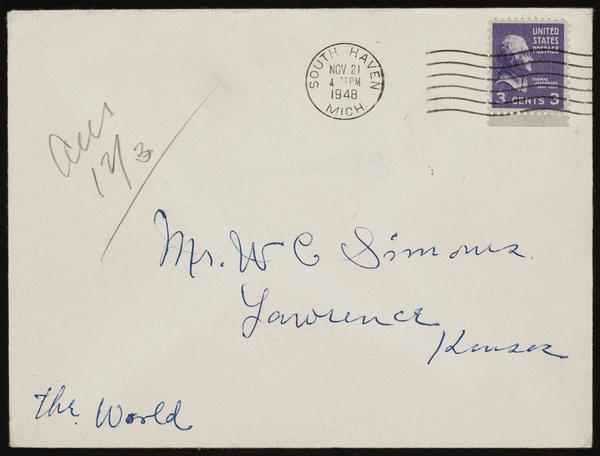 SOUTH HAVEN
NOV 21
4 PM
1948
MICH.
UNITED
STATES
POSTAGE
THOMAS
JEFFERSON
3 CENTS 3
12/3
Mr. W C Simons
Lawrence
Kansas
The World